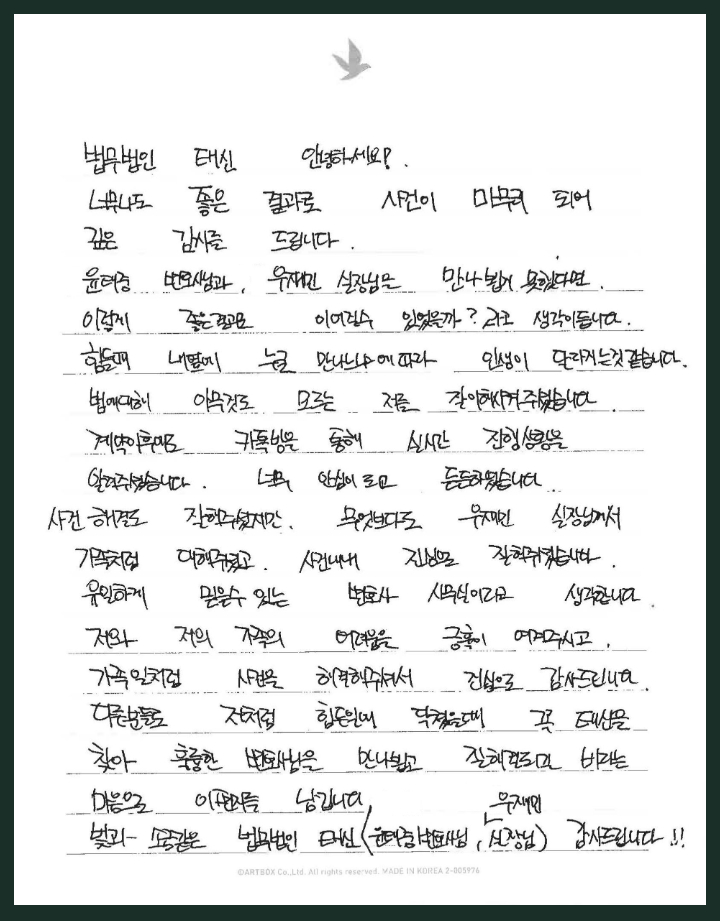 법무법인 태신 안녕하세요? .
너무나도 좋은 결과로 사건이 마무리 되어
깊은 감사를 드립니다 .
윤태중 변호사님과, 우재민 실장님을 만나뵙지 못했다면 .
이렇게 좋은결과로 이어질수 있었을까? 라고 생각이듭니다 .
힘들때 내옆에 누굴 만나느냐에 따라 인생이 달라지는것 같습니다.
법에대해 아무것도 모르는 저를 잘이해시켜주셨습니다 .
계약이후에도 카톡방을 통해 실시간 진행상황을
알려주셨습니다 . 너무 안심이 되고 든든하였습니다 .
사건 해결도 잘해주셨지만, 무엇보다도 우재민 실장님께서
가족처럼 대해주셨고 . 사건내내 진심으로 잘해주셨습니다 .
유일하게 믿을수 있는 변호사 사무실이라고 생각합니다 .
저와 저의 가족의 어려움을 긍휼히 여겨주시고 .
가족일처럼 사건을 해결해주셔서 진심으로 감사드립니다 .
다른분들도 저처럼 힘든일에 닥쳤을때 꼭 태신을
찾아 훌륭한 변호사님을 만나뵙고 잘해결되길 바라는
마음으로 이편지를 남깁니다
빛과- 소금같은 법무법인 태신 (윤태중 변호사님, 우재민 실장님) 감사드립니다 !!
©ARTBOX Co.,Ltd. All rights reserved. MADE IN KOREA 2-005976